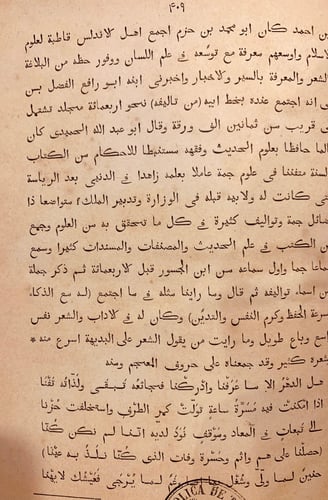 ٤٠٩
بن احمد كان ابو محمد بن حزم اجمع اهل الاندلس قاطبة لعلوم
الاسلام واوسعهم معرفة مع توسعه في علم اللسان ووفور حظه من البلاغة
والشعر والمعرفة بالسير والاخبار واخبرني ابنه ابو رافع الفضل بن
ى انه اجتمع عنده بخط ابيه (من تاليفه) نحو اربعمائة مجلد تشتمل
ى قريب من ثمانين الف ورقة وقال ابو عبد الله الحميدى كان
الما حافظا بعلوم الحديث وفقهه مستنبطا للاحكام من الكتاب
السنة متفننا في علوم جمة عاملا بعلمه زاهدا في الدنيى بعد الرياسة
تى كانت له ولابيه قبله في الوزارة وتدبير الملك متواضعا ذا
ضائل جمة وتواليف كثيرة في كل ما تحقق به من العلوم وجمع
من الكتب في علم الحديث والمصنفات والمسندات كثيرا وسمع
ماعا جما واول سماعه من ابن الجسور قبل الاربعمائة ثم ذكر جملة
من اسماء تواليفه ثم قال وما راينا مثله في ما اجتمع (له مع الذكاء
سرعة الحفظ وكرم النفس والتدين) وكان له في الاداب والشعر نفس
اسع وباع طويل وما رايت من يقول الشعر على البديهة اسرع منه *
شعره كثير وقد جمعناه على حروف المعجم ومنه
هل الدهر الا ما عرفنا وادركنا فجائعه تبقى ولذاته تفنا
اذا امكنت فيه مسرة ساعة تولت كمر الطرف واستخلفت حزنا
الى تبعات في المعاد وموقف نود لديه اننا لم نكن كنا
(حصلنا على هم واثم وحسرة وفات الذى كنا نلذ به عينا)
حنين لما ولى وشغل بما وغم لما يرجى فعيشك لا يهنا